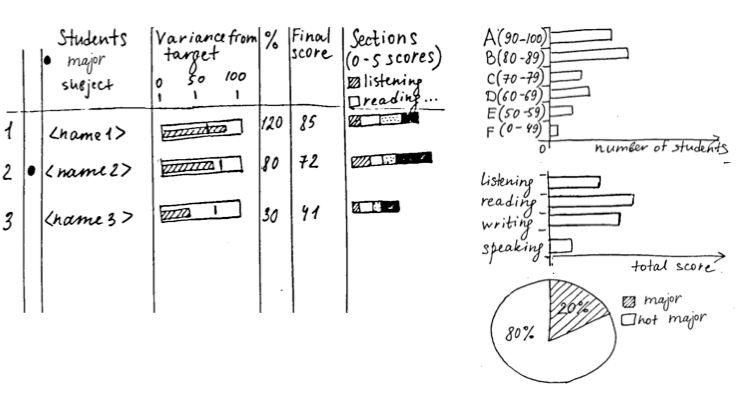 Students
• major
subject
Variance from
target
0 50 100
%
Final
score
Sections
(0-5 scores)
listening
reading...
1 <name 1> 120 85
2 • <name 2> 80 72
3 <name 3> 30 41
A (90-100)
B (80-89)
C (70-79)
D (60-69)
E (50-59)
F (0-49)
0 number of students
listening
reading
writing
speaking
total score
20%
80%
major
not major